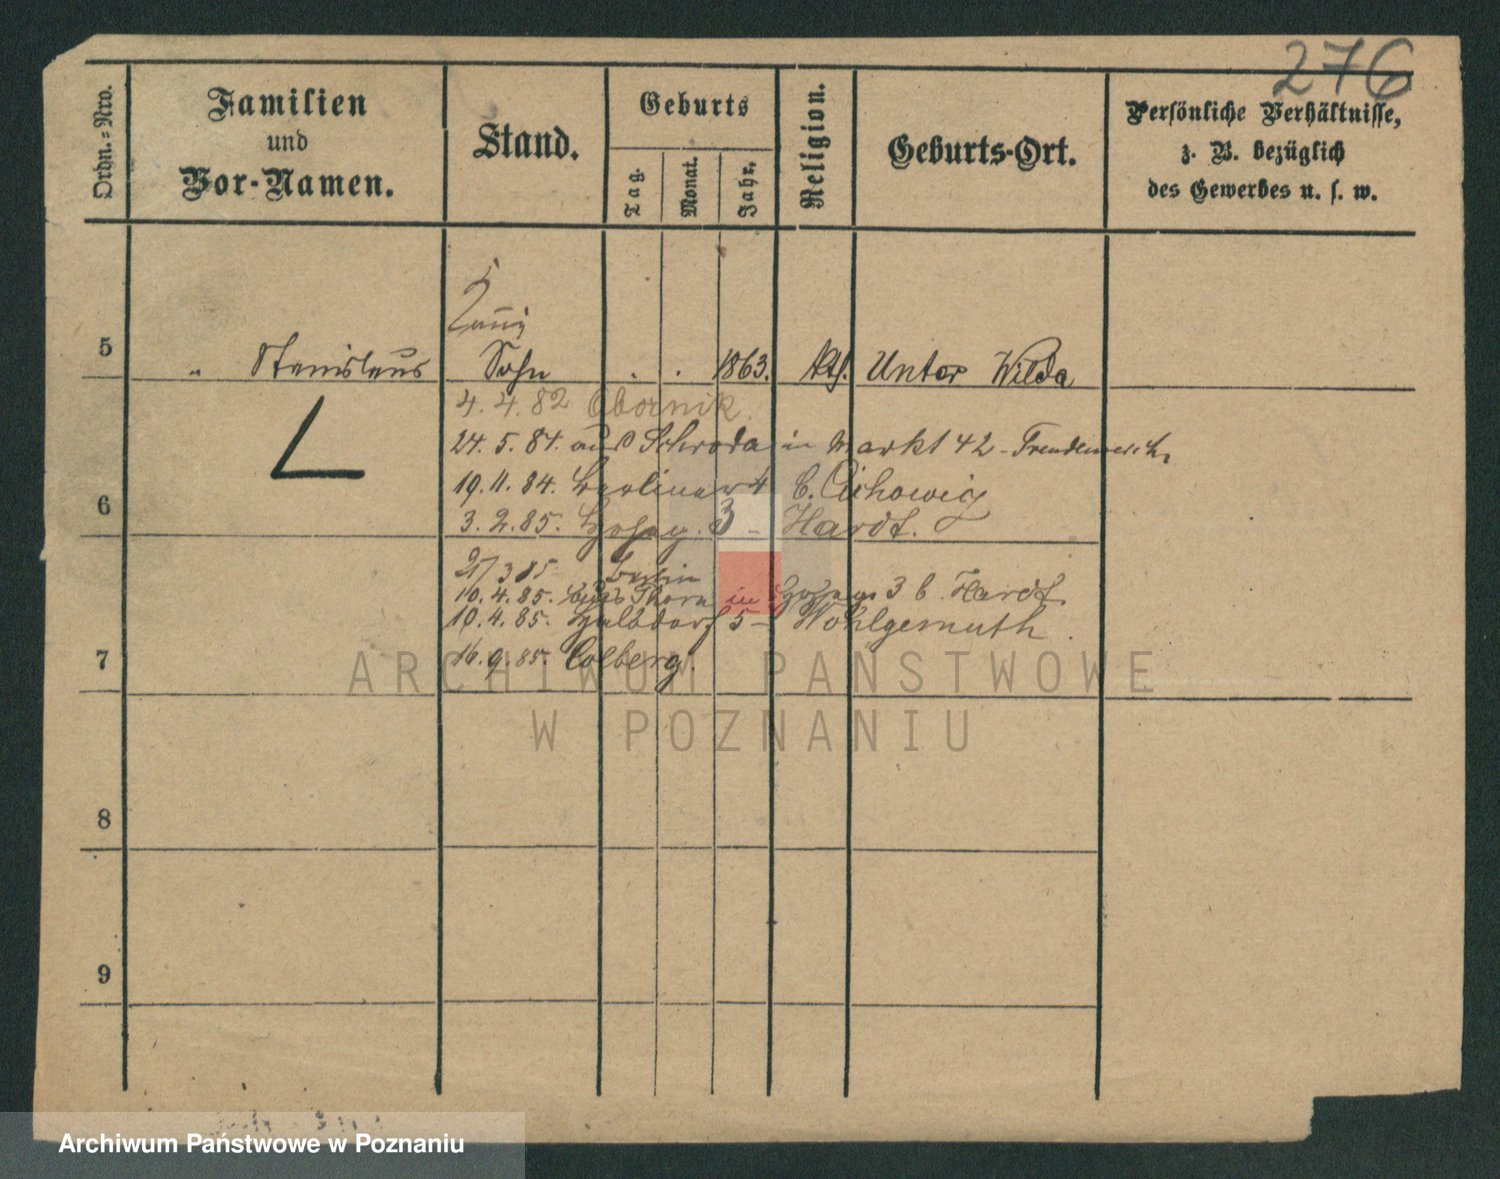 276
Ordn.=Nro.
Familien
und
Vor-Namen.
Stand.
Geburts
Tag.
Monat.
Jahr.
Religion.
Geburts-Ort.
Persönliche Verhältnisse,
z. B. bezüglich
des Gewerbes u. s. w.
5 " Stanislaus Sohn . . 1863. kth. Unter Wilda
4. 4. 82 Obornik.
24. 5. 84. aus Schroda in Markt 42 -
6
19. 11. 84. Berliner 4 b. Cichowicz
3. 2. 85. 3 - Hardt.
21/3 85 Berlin
10. 4. 85. aus Thorn in 3 b. Hardt
10. 4. 85. Halbdorf 5 - Wohlgemuth.
7
16. 9. 85. Colberg.
8
9
ARCHIWUM PAŃSTWOWE
W POZNANIU
Archiwum Państwowe w Poznaniu